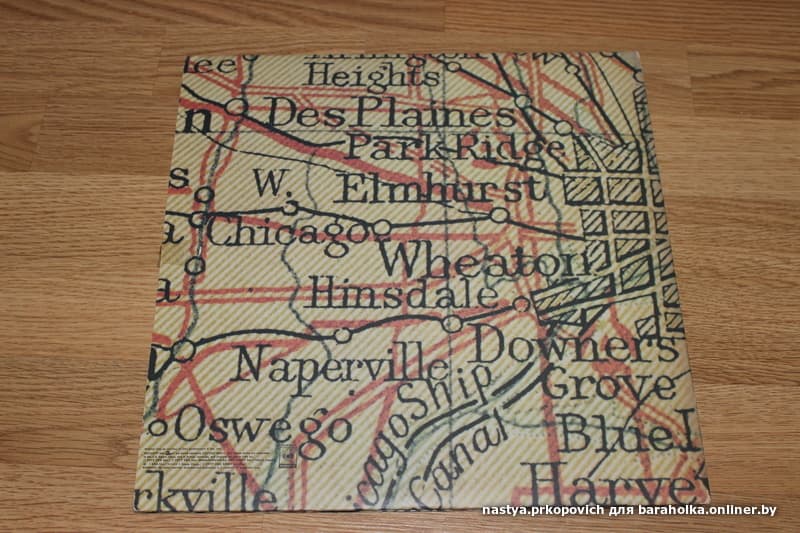 lee
Heights
Des Plaines
n
Park Ridge
s
W.
Elmhurst
a Chicago
Wheaton
a
Hinsdale
Downers
Naperville
Grove
Oswego
icago Ship
Canal
Blue I
Harve
rkville
nastya.prkopovich для baraholka.onliner.by